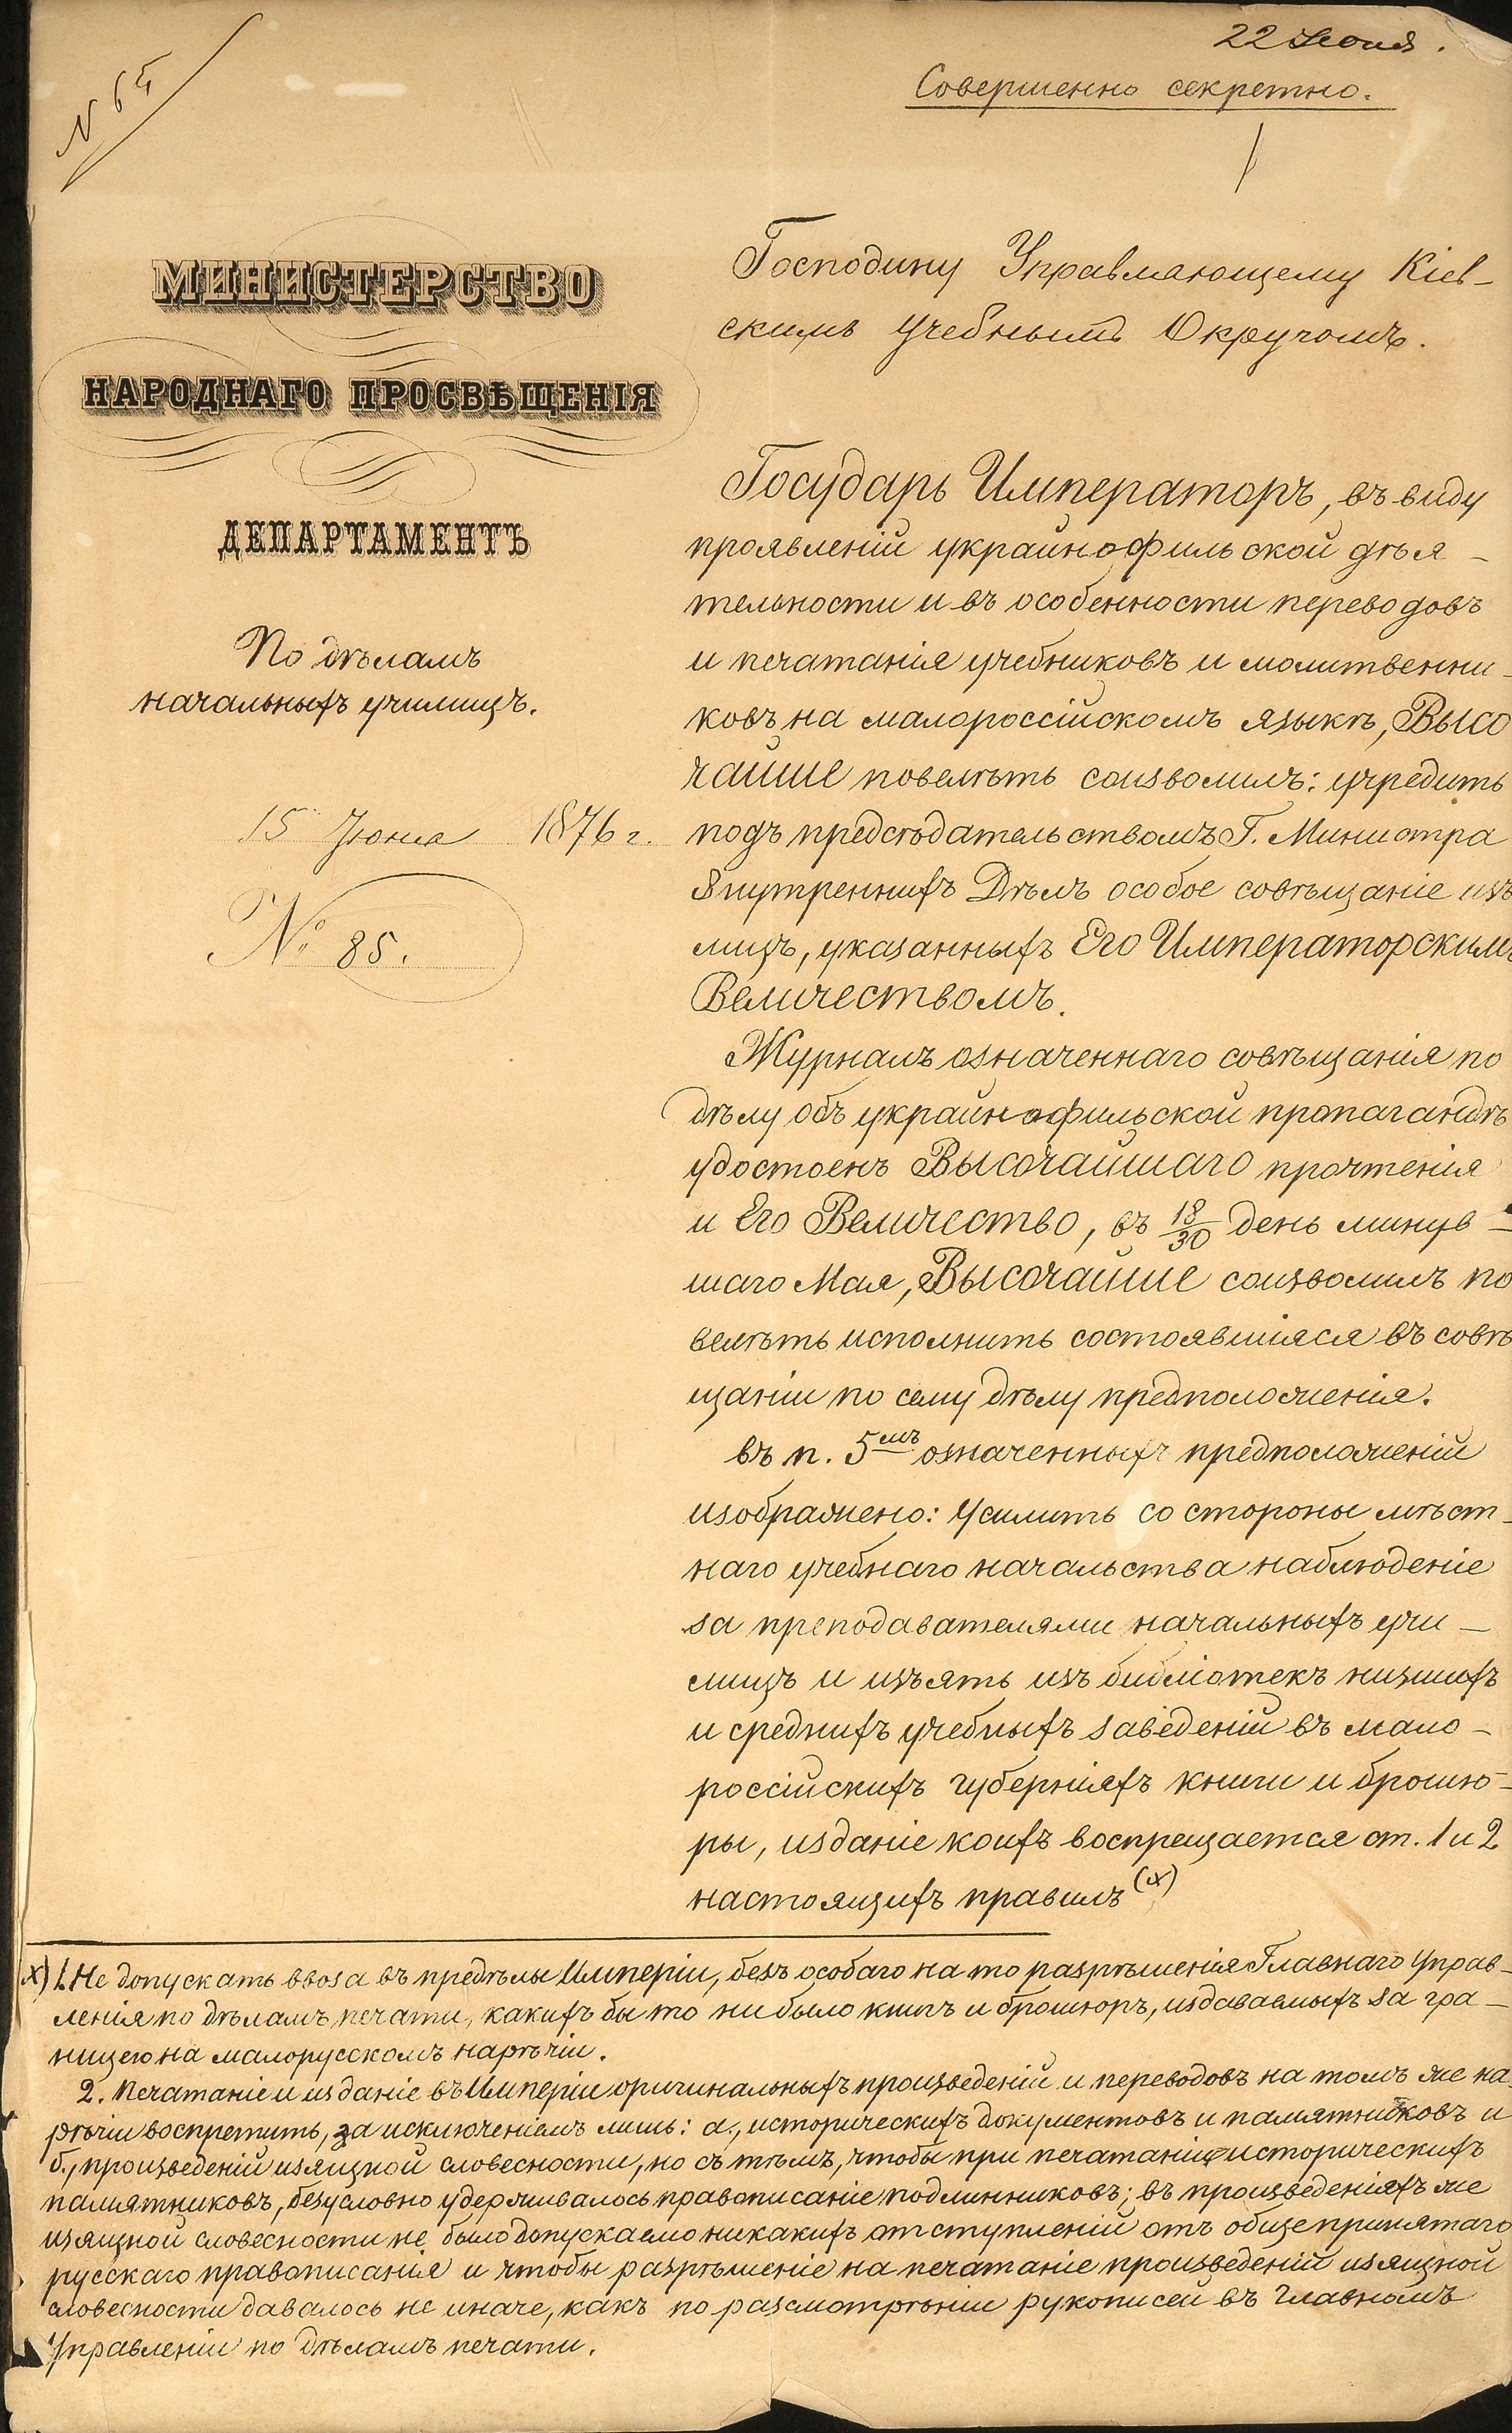 22 Іюня.
Совершенно секретно.
N 65
МИНИСТЕРСТВО
НАРОДНАГО ПРОСВѢЩЕНІЯ
ДЕПАРТАМЕНТЪ
По дѣламъ
начальныхъ училищъ.
15 Іюня 1876 г.
№ 85.
Господину Управляющему Кіев-
скимъ Учебнымъ Округомъ.
Государь Императоръ, въ виду
проявленій украинофильской дѣя-
тельности и въ особенности переводовъ
и печатанія учебниковъ и молитвенни-
ковъ на малороссійскомъ языкѣ, Высо
чайше повелѣть соизволилъ: учредить
подъ предсѣдательствомъ Г. Министра
Внутреннихъ Дѣлъ особое совѣщаніе изъ
лицъ, указанныхъ Его Императорскимъ
Величествомъ.
Журналъ означеннаго совѣщанія по
дѣлу объ украинофильской пропагандѣ
удостоенъ Высочайшаго прочтенія
и Его Величество, въ 18/30 день минув-
шаго Мая, Высочайше соизволилъ по
велѣть исполнить состоявшіяся въ совѣ
щаніи по сему дѣлу предположенія.
въ п. 5мъ означенныхъ предположеній
изображено: Усилить со стороны мѣст-
наго учебнаго начальства наблюденіе
за преподавателями начальныхъ учи-
лищъ и изъять изъ библіотекъ низшихъ
и среднихъ учебныхъ заведеній въ мало-
россійскихъ губерніяхъ книги и брошю-
ры, изданіе коихъ воспрещается ст. 1 и 2
настоящихъ правилъ (х)
х) 1. Не допускать ввоза въ предѣлы Имперіи, безъ особаго на то разрѣшенія Главнаго Управ-
ленія по дѣламъ печати, какихъ бы то ни было книгъ и брошюръ, издаваемыхъ за гра-
ницею на малорусскомъ нарѣчіи.
2. Печатаніе и изданіе въ Имперіи оригинальныхъ произведеній и переводовъ на томъ же на
рѣчіи воспретить, за исключеніемъ лишь: а., историческихъ документовъ и памятниковъ и
б., произведеній изящной словесности, но съ тѣмъ, чтобы при печатаніи историческихъ
памятниковъ, безусловно удерживалось правописаніе подлинниковъ; въ произведеніяхъ же
изящной словесности не было допускаемо никакихъ отступленій отъ общепринятаго
русскаго правописанія и чтобы разрѣшеніе на печатаніе произведеній изящной
словесности давалось не иначе, какъ по разсмотрѣніи рукописей въ Главномъ
Управленіи по дѣламъ печати.